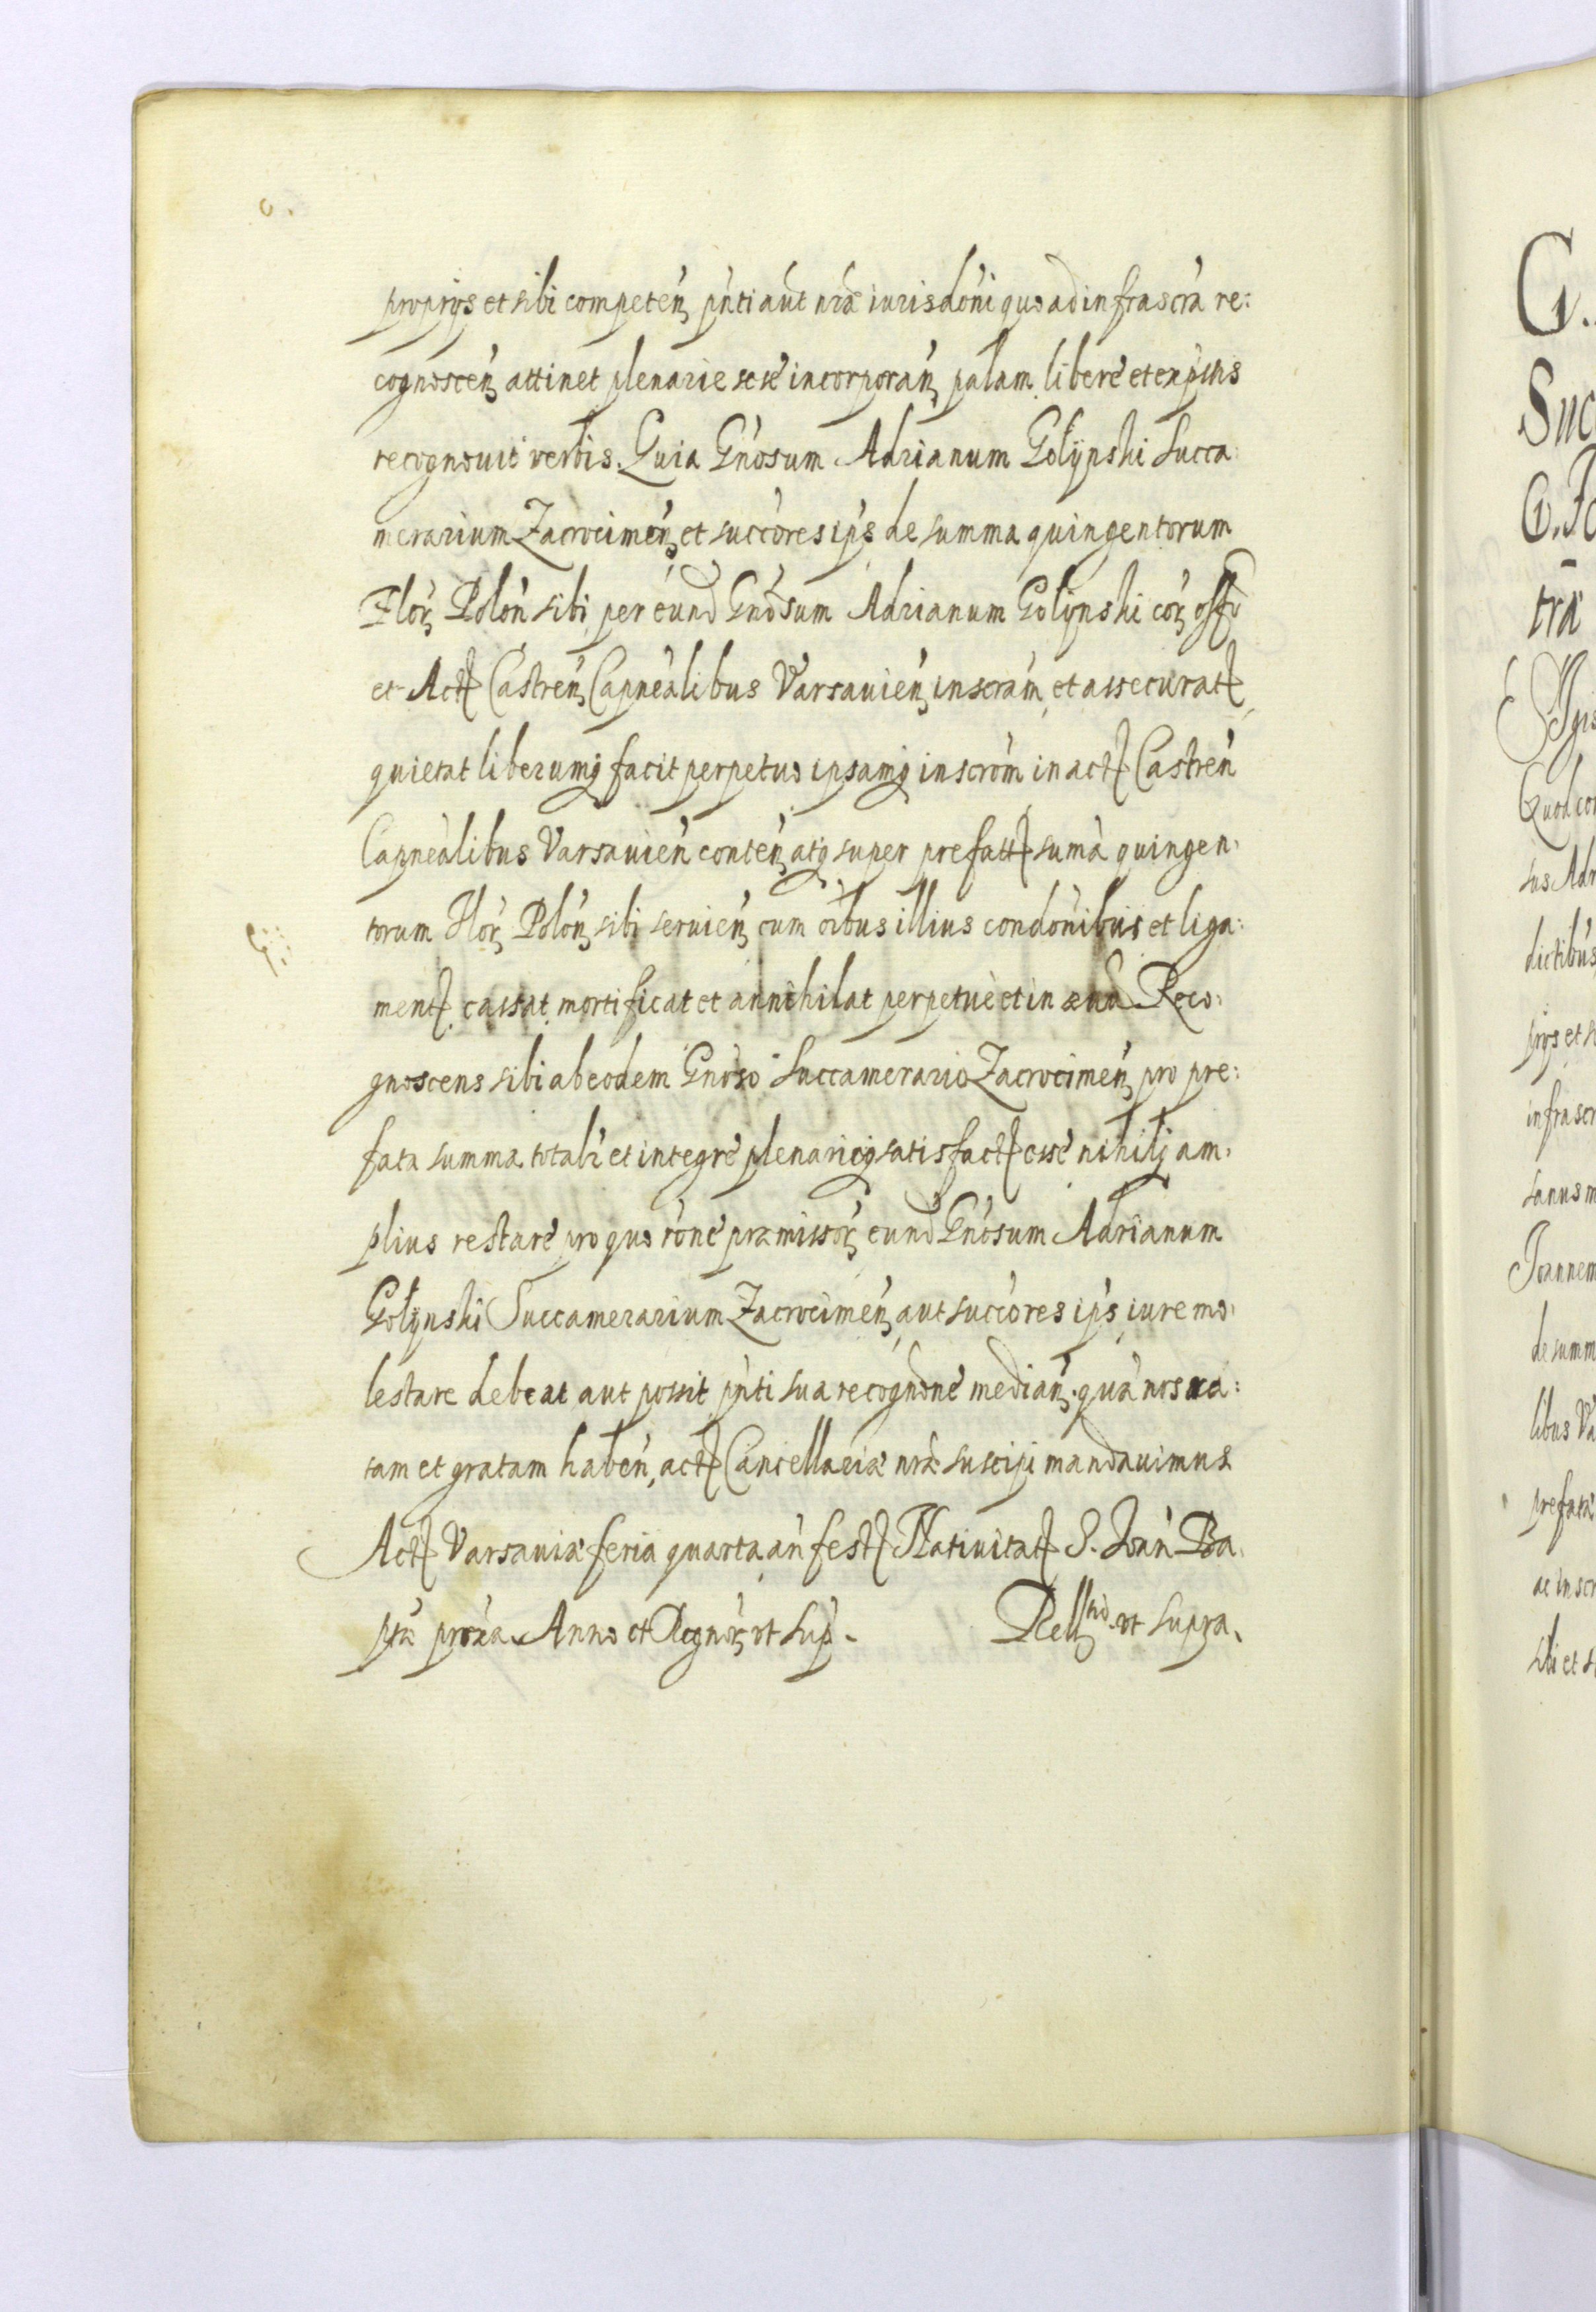 proprijs et sibi competen pnti aut nra iurisdoni quo ad infrascra re:
cognoscen attinet plenarie sese incorporan palam libere et expssis
recognouit verbis. Quia Gnosum Adrianum Gołÿnski Succa:
merarium Zacrocimen et succores ips de summa quingentorum
Flor Polon sibi per eund Gnosum Adrianum Golÿnski cor offo
et Act Castren Capnealibus Varsauien inscram et assecurat
quietat liberumq facit perpetuo ipsamq inscrom in act Castren
Capnealibus Varsauien conten atq super prefatt suma quingen:
torum Flor Polon sibi seruien cum oibus illius condonibus et liga:
ment cassat mortificat et annihilat perpetue et in æuu Reco:
gnoscens sibi ab eodem Gnoso Succamerario Zacrocimen pro pre:
fata summa totalr et integre plenarieq satisfact esse nihilq am:
plius restare pro quo rone præmissor eund Gnosum Adrianum
Gołÿnski Succamerarium Zacrocimen aut succores ips iure mo:
lestare debeat aut possit pnti sua recognone median. qua nos ra:
tam et gratam haben, act Cancellariæ nræ suscipi mandauimus
Act Varsauiæ feria quarta an fest Natiuitat S. Joan Ba:
ptæ proxa. Anno et Regnor vt sup. Rell vt supra.
G.
Suc
G. Jo
tra
Quod con
sus Adr
dictibus
prijs et s
infrascr
sanus m
Joannem
de summ
libus Va
prefata
ac inscr
sibi et s